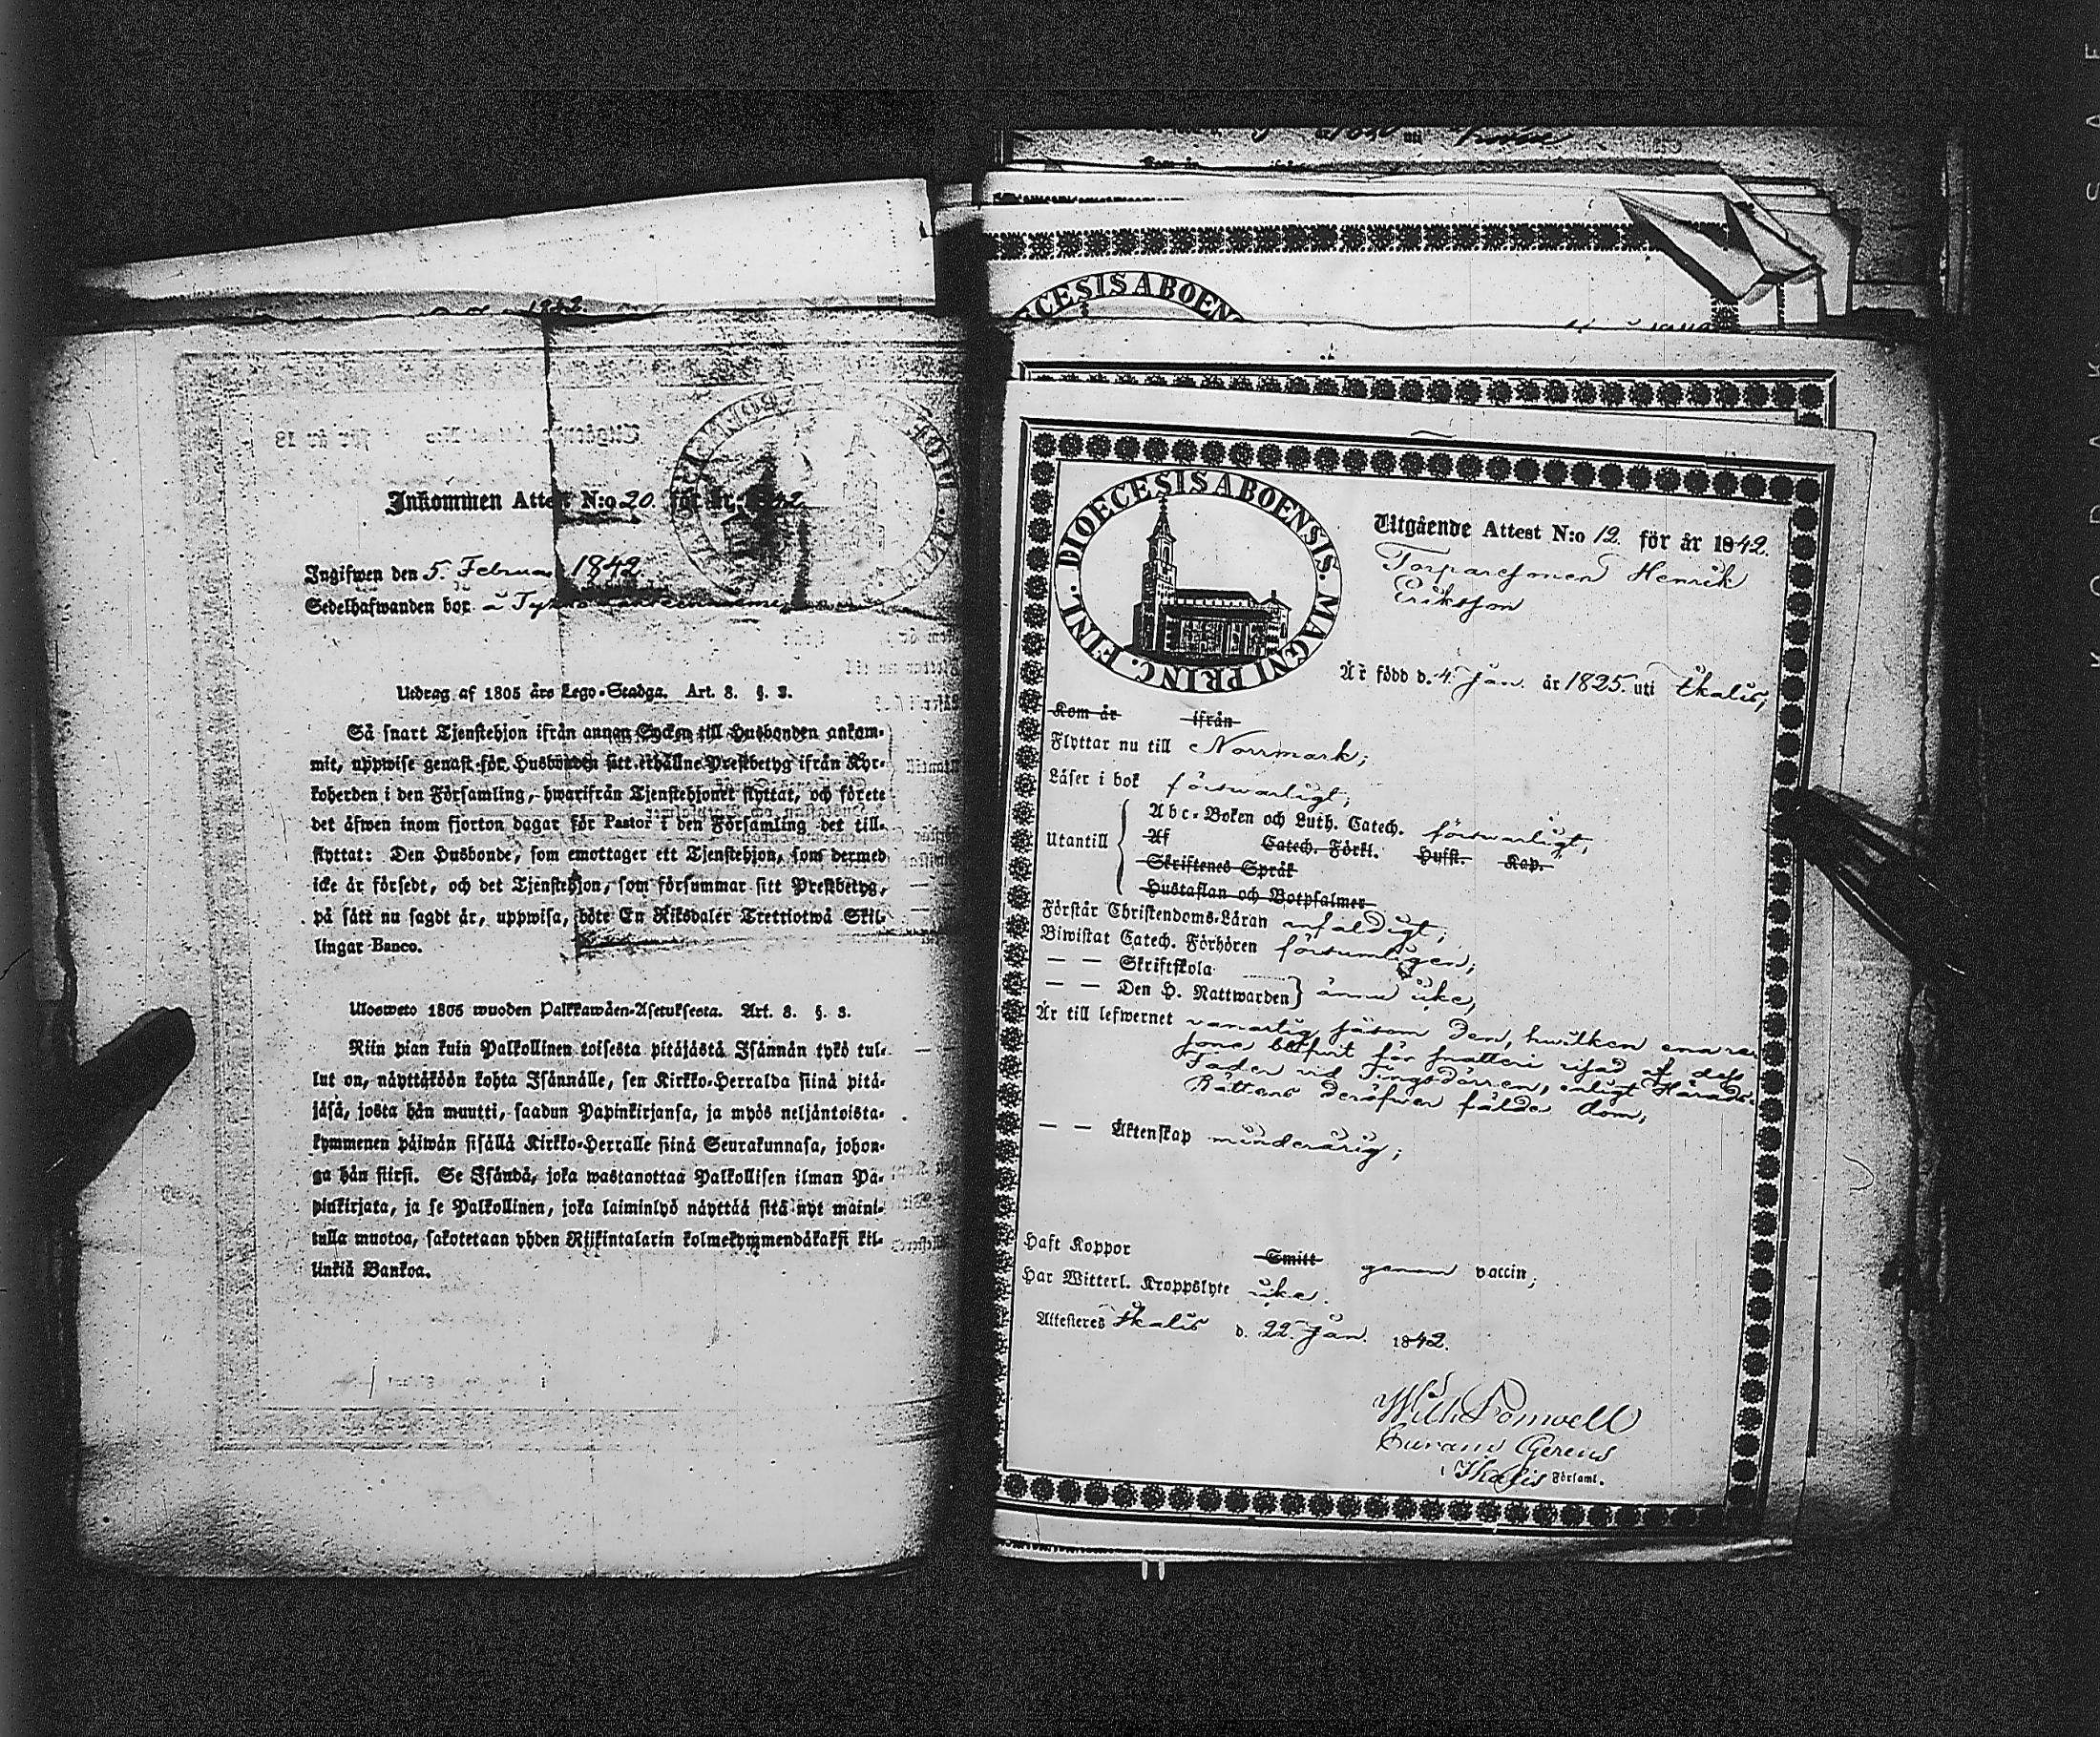 1842.
Inkommen Attest N:o 20. för år 1842.
Ingifwen den 5. Februar 1842
Sedelhafwanden bor å
Utdrag af 1805 års Lego-Stadga. Art. 8. §. 3.
Så snart Tjenstehjon ifrån annan Socken till Husbonden ankom-
mit, uppwise genast för Husbonden sitt erhållne Prestbetyg ifrån Kyr-
koherden i den Församling, hwarifrån Tjenstehjonet flyttat, och förete
det äfwen inom fjorton dagar för Pastor i den Församling det till-
flyttat: Den Husbonde, som emottager ett Tjenstehjon, som dermed
icke är försedt, och det Tjenstehjon, som försummar sitt Prestbetyg,
på sätt nu sagdt är, uppwisa, böte En Riksdaler Trettiotwå Skil-
lingar Banco.
Ulosweto 1805 wuoden Palkkawäen-Asetuksesta. Art. 8. §. 3.
Niin pian kuin Palkollinen toisesta pitäjästä Isännän tykö tul-
lut on, näyttäköön kohta Isännälle, sen Kirkko-Herralda siinä pitä-
jäsä, josta hän muutti, saadun Papinkirjansa, ja myös neljäntoista-
kymmenen päiwän sisällä Kirkko-Herralle siinä Seurakunnasa, johon-
ga hän siirsi. Se Isändä, joka wastanottaa Palkollisen ilman Pa-
pinkirjata, ja se Palkollinen, joka laiminlyö näyttää sitä nyt maini-
tulla muotoa, sakotetaan yhden Riikintalarin kolmekymmendäkaksi kil-
linkiä Bankoa.
uti
Kom år ifrån
ŒCESIS ABOEN
DIOECESIS ABOENSIS. MAGNI PRINC. FINL.
Utgående Attest N:o 12. för år 1842.
Torparesonen Henrik
Eriksson
Är född d. 4. Jan. år 1825. uti Ikalis,
Kom år ifrån
Flyttar nu till Norrmark;
Läser i bok försvarligt;
Utantill
Abc-Boken och Luth. Catech. försvarligt;
Af Catech. Förkl. Hufst. Kap.
Skriftenes Språk
Hustaflan och Botpsalmer
Förstår Christendoms-Läran enfaldigt;
Biwistat Catech. Förhören försumligen;
— — Skriftskola
— — Den H. Nattwarden } ännu icke,
Är till lefwernet vanartig såsom den, hwilken
blifvit för snatteri risad af dess
Fader vid Tingsdörren, enligt Härads-
Rättens deröfver fälde dom;
— — Äktenskap minderårig;
Haft Koppor Smitt genom vaccin;
Har Witterl. Kroppslyte icke.
Attesteres Ikalis d. 22. Jan. 1842.
Wilh.
Gerens
i Ikalis Församl.
KODAK SAFE